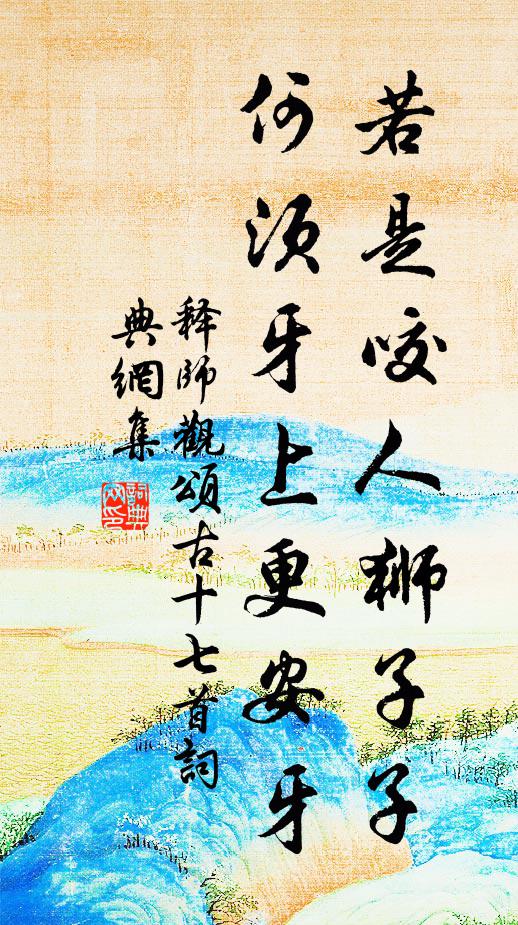 若是咬人狮子子
何须牙上更安牙
释师觀頌古十七首詞
典網集
詞典网印